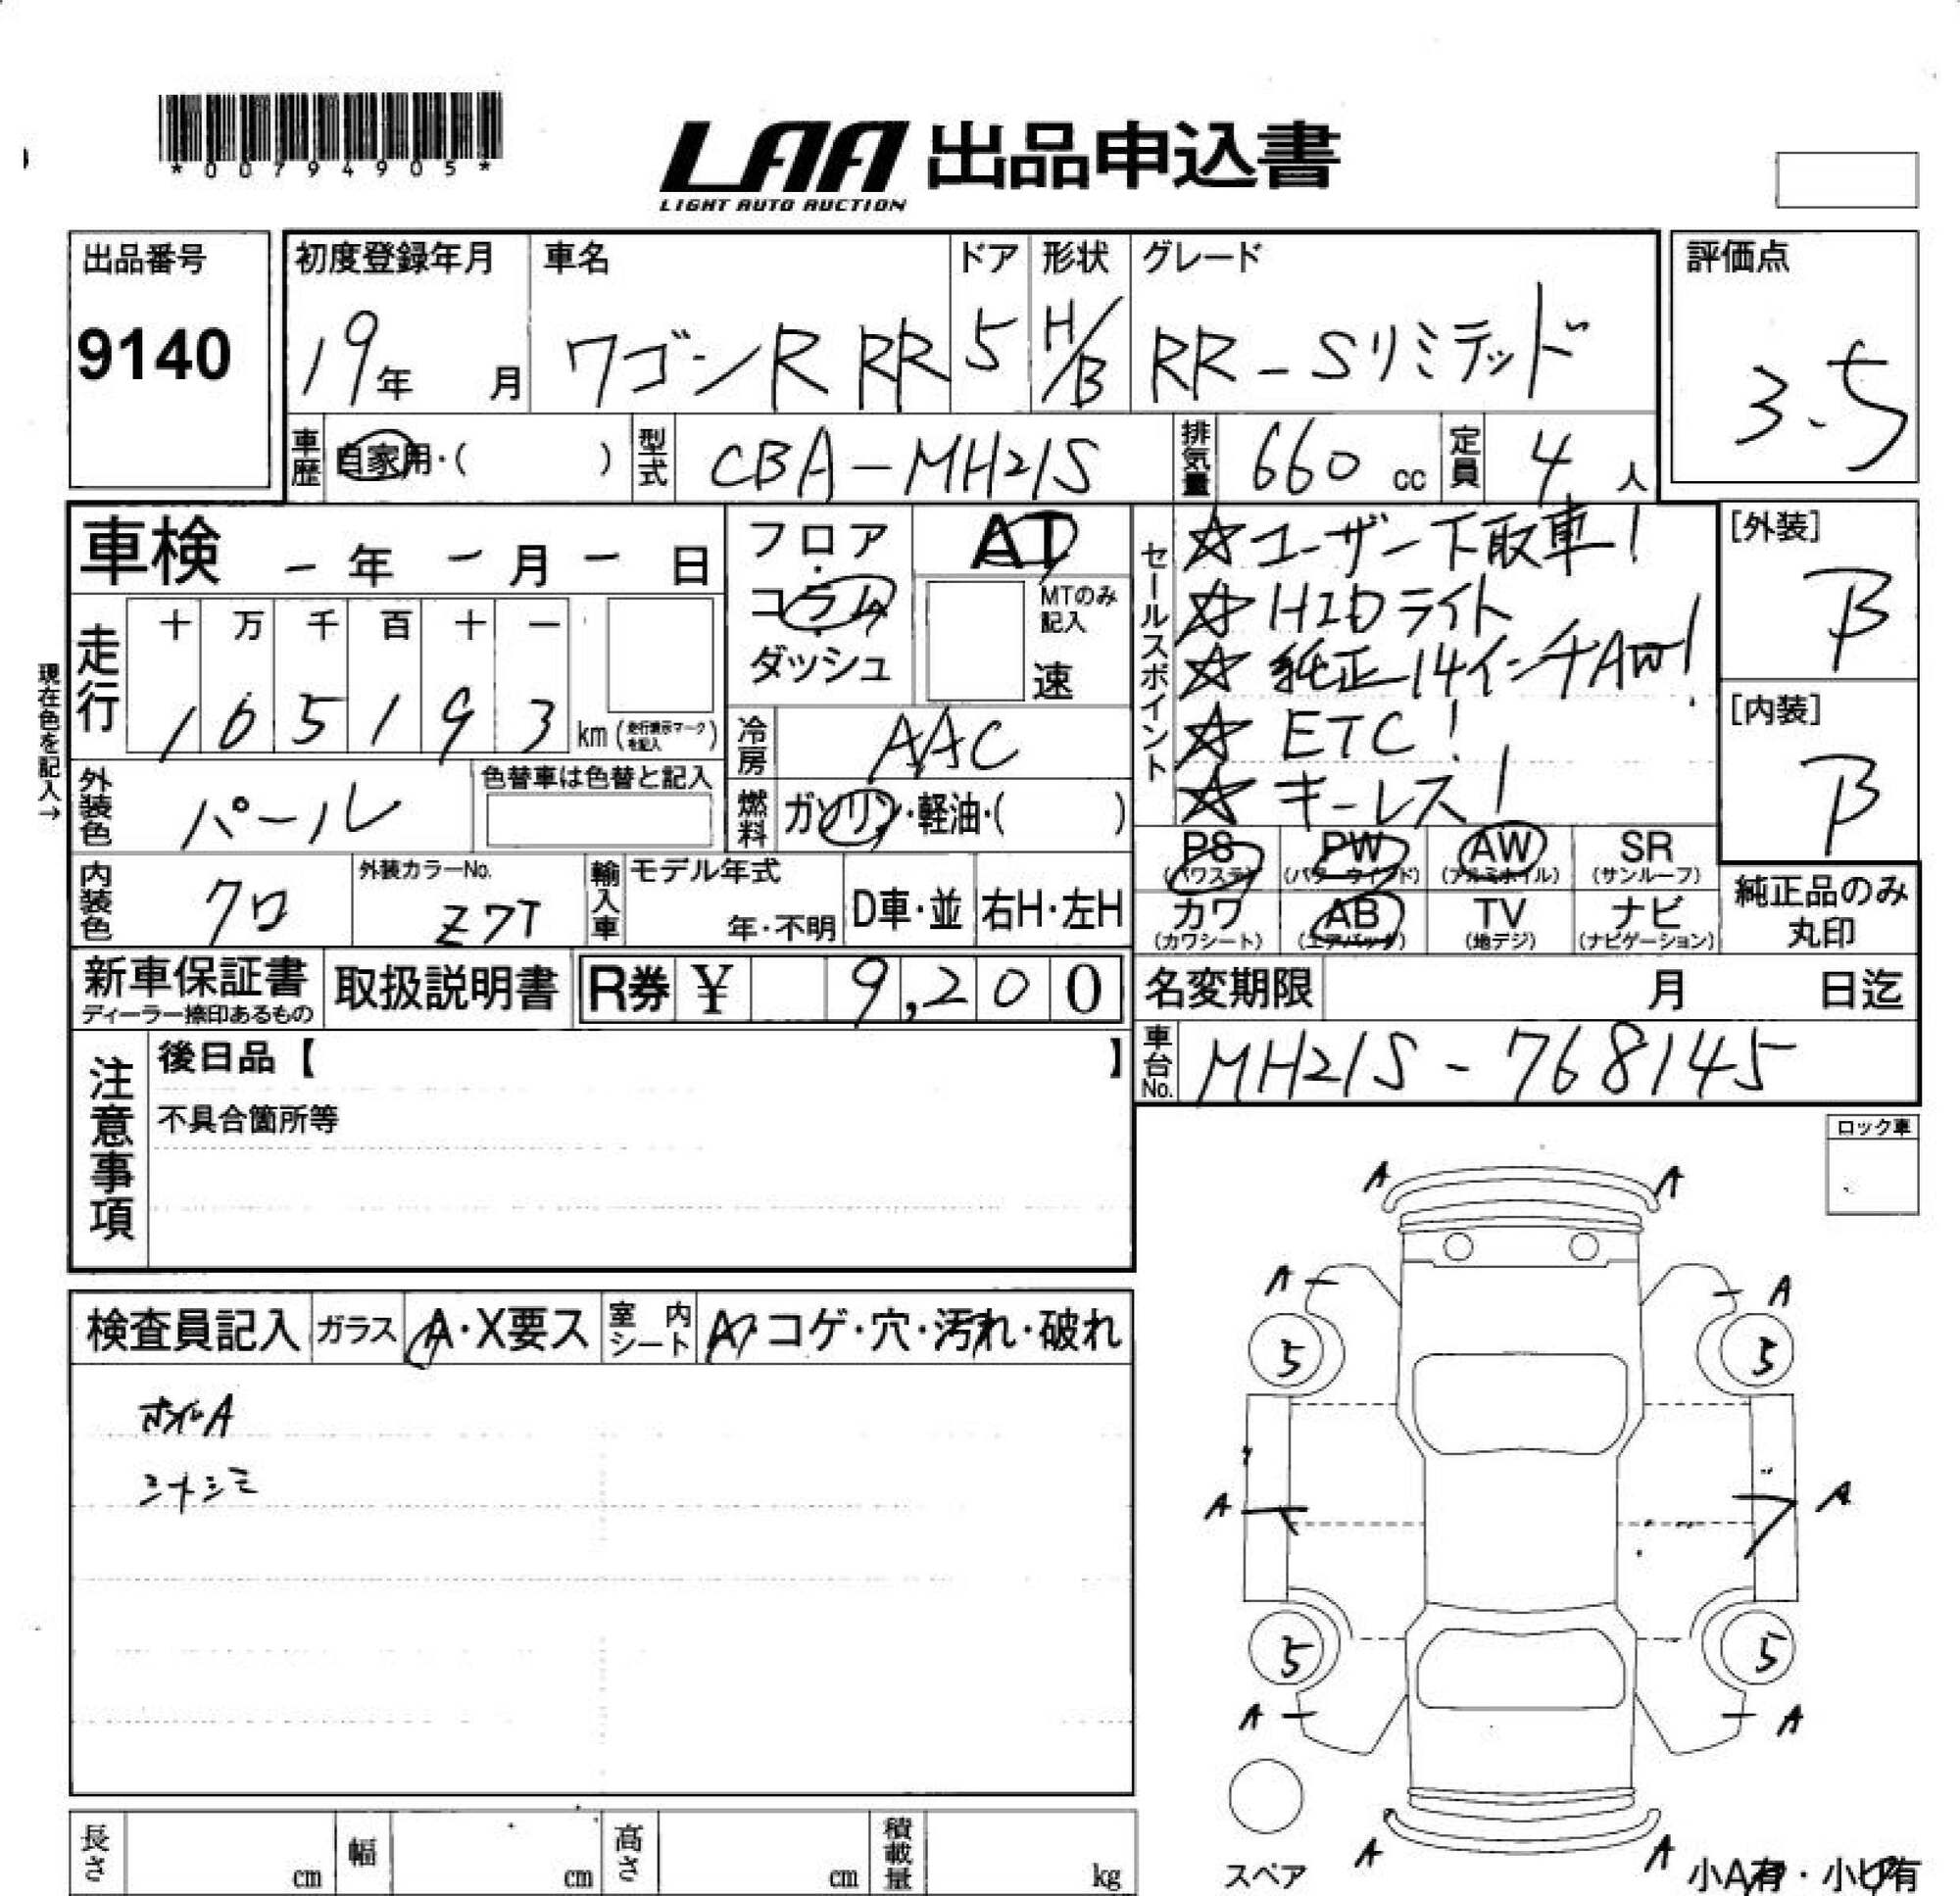 *00794905*
LAA 出品申込書
LIGHT AUTO AUCTION
出品番号
9140
初度登録年月
19年 月
車名
ワゴンR RR
ドア
5
形状
H/B
グレード
RR-Sリミテッド
評価点
3.5
車歴 自家用・( )
型式 CBA-MH21S
排気量 660 cc
定員 4 人
車検 - 年 - 月 - 日
現在色を記入→
走行
十 万 千 百 十 一
105193 km (走行表示マークを記入)
フロア・コラム・ダッシュ
AT
MTのみ記入
速
冷房 AAC
燃料 ガソリン・軽油・( )
外装色 パール
色替車は色替と記入
内装色 クロ
外装カラーNo.
Z7T
輸入車 モデル年式
年・不明
D車・並 右H・左H
セールスポイント
☆ユーザー下取車!
☆HIDライト
☆純正14インチAW!
☆ETC!
☆キーレス!
[外装]
B
[内装]
B
PS (パワステ) PW (パワーウインド) AW (アルミホイル) SR (サンルーフ)
カワ (カワシート) AB (エアバック) TV (地デジ) ナビ (ナビゲーション)
純正品のみ丸印
新車保証書
ディーラー捺印あるもの
取扱説明書
R券 ¥ 9,200
名変期限 月 日迄
車台No. MH21S-768145
注意事項
後日品【 】
不具合箇所等
ロック車
検査員記入
ガラス A・X要ス
室内シート A・コゲ・穴・汚れ・破れ
ホイルA
シートシミ
A A
A A
5 5
A A
5 5
A A
A A
スペア
小A有・小U有
長さ cm
幅 cm
高さ cm
積載量 kg